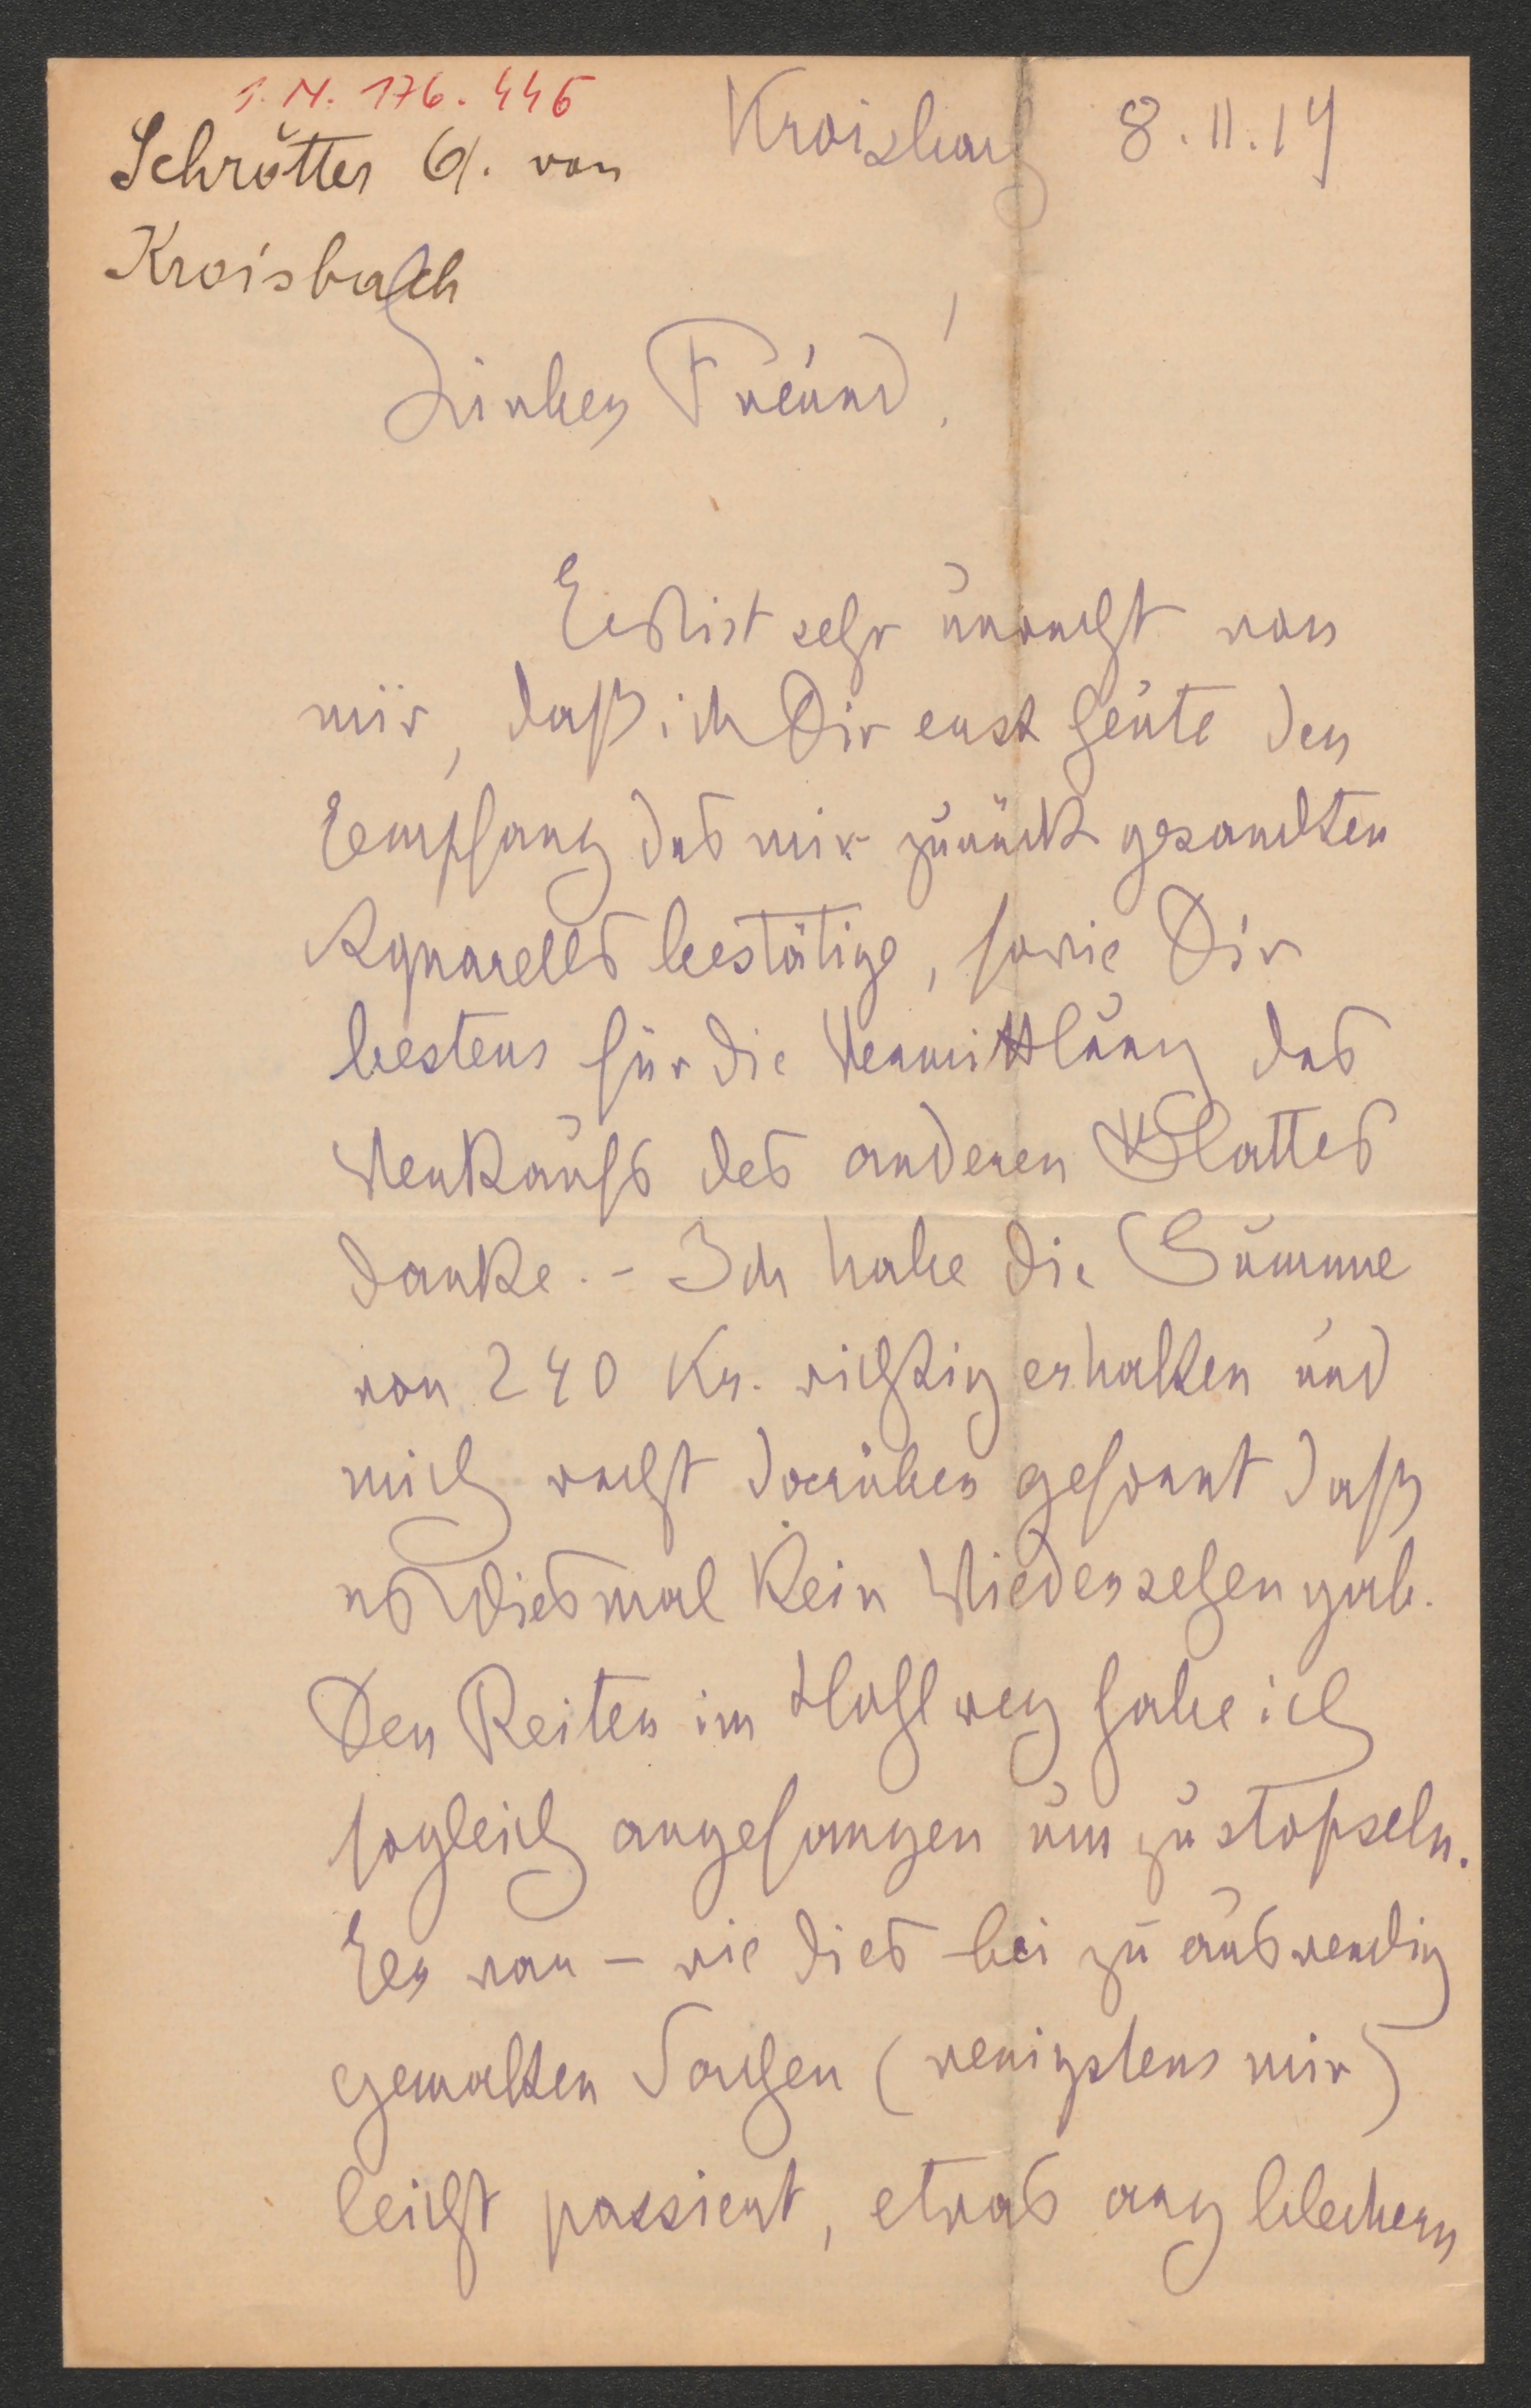 I. N. 176.446
Schrötter A. von
Kroisbach
Kroisbach 8.II.14
Lieber Freund!
Es ist sehr unrecht von
mir, daß ich Dir erst heute den
Empfang des mir zurück gesandten
Aquarells bestätige, sowie Dir
bestens für die Vermittlung des
Verkaufs des anderen Blattes
danke. - Ich habe die Summe
von 240 Kr. richtig erhalten und
mich recht darüber gefreut daß
es diesmal kein Wiedersehen gab.
Den Reiter im Hohlweg habe ich
sogleich angefangen umzustopseln.
Er war - wie dies bei zu auswendig
gemalten Sachen (wenigstens mir)
leicht passiert, etwas arg blechern